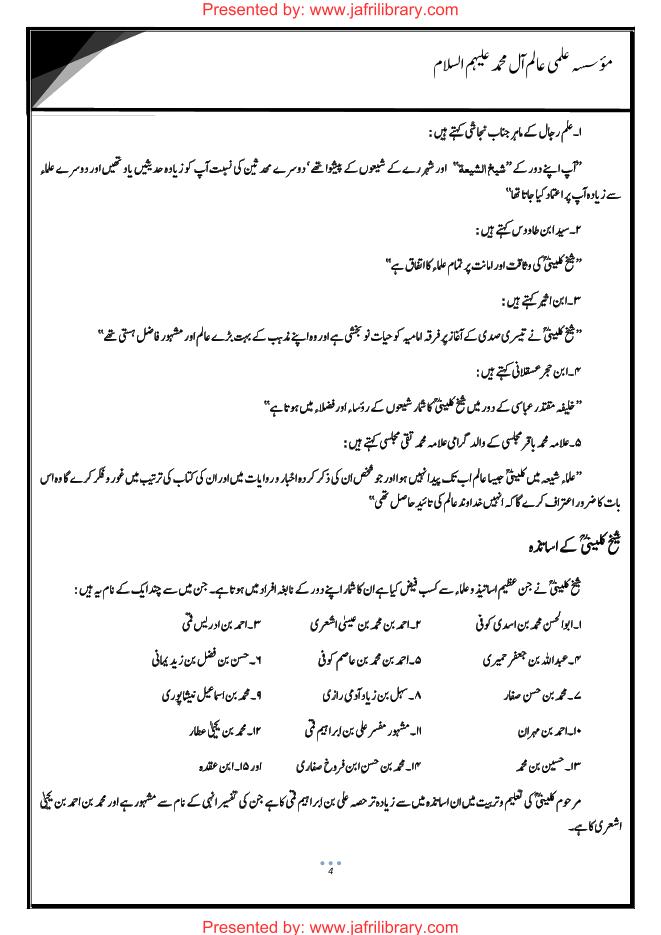 Presented by: www.jafrilibrary.com
مؤسسہ علمی عالم آل محمد علیہم السلام
۱۔علم رجال کے ماہر جناب نجاشی کہتے ہیں:
’’آپ اپنے دور کے ’’شیخ الشیعة‘‘ اور شہر رے کے شیعوں کے پیشوا تھے‘ دوسرے محدثین کی نسبت آپ کو زیادہ حدیثیں یاد تھیں اور دوسرے علماء
سے زیادہ آپ پر اعتماد کیا جاتا تھا‘‘
۲۔سید ابن طاودس کہتے ہیں:
’’شیخ کلینیؒ کی وثاقت اور امانت پر تمام علماء کا اتفاق ہے‘‘
۳۔ابن اثیر کہتے ہیں:
’’شیخ کلینیؒ نے تیسری صدی کے آغاز پر فرقہ امامیہ کو حیات نو بخشی ہے اور وہ اپنے مذہب کے بہت بڑے عالم اور مشہور فاضل ہستی تھے‘‘
۴۔ابن حجر عسقلانی کہتے ہیں:
’’خلیفہ مقتدر عباسی کے دور میں شیخ کلینیؒ کا شمار شیعوں کے رؤساء اور فضلاء میں ہوتا ہے‘‘
۵۔علامہ محمد باقر مجلسی کے والد گرامی علامہ محمد تقی مجلسی کہتے ہیں:
’’علماء شیعہ میں کلینیؒ جیسا عالم اب تک پیدا نہیں ہوا اور جو شخص اِن کی ذکر کردہ اخبار و روایات میں اور ان کی کتاب کی ترتیب میں غور و فکر کرے گا وہ اس
بات کا ضرور اعتراف کرے گا کہ انہیں خداوند عالم کی تائید حاصل تھی‘‘
شیخ کلینیؒ کے اساتذہ
شیخ کلینیؒ نے جن عظیم اساتیذ و علماء سے کسب فیض کیا ہے ان کا شمار اپنے دور کے نابغہ افراد میں ہوتا ہے۔ جن میں سے چند ایک کے نام یہ ہیں:
۱۔ابوالحسن محمد بن اسدی کوفی ۲۔احمد بن محمد بن عیسیٰ اشعری ۳۔احمد بن ادریس قمی
۴۔عبداللہ بن جعفر حمیری ۵۔احمد بن محمد بن عاصم کوفی ۶۔حسن بن فضل بن زید یمانی
۷۔محمد بن حسن صفار ۸۔سہل بن زیاد آدمی رازی ۹۔محمد بن اسماعیل نیشاپوری
۱۰۔احمد بن مہران ۱۱۔مشہور مفسر علی بن ابراہیم قمی ۱۲۔محمد بن یحییٰ عطار
۱۳۔حسین بن محمد ۱۴۔محمد بن حسن ابن فروخ صفاری اور ۱۵۔ابن عقدہ
مرحوم کلینیؒ کی تعلیم و تربیت میں ان اساتذہ میں سے زیادہ تر حصہ علی بن ابراہیم قمی کا ہے جن کی تفسیر انہی کے نام سے مشہور ہے اور محمد بن احمد بن یحییٰ
اشعری کا ہے۔
4
Presented by: www.jafrilibrary.com